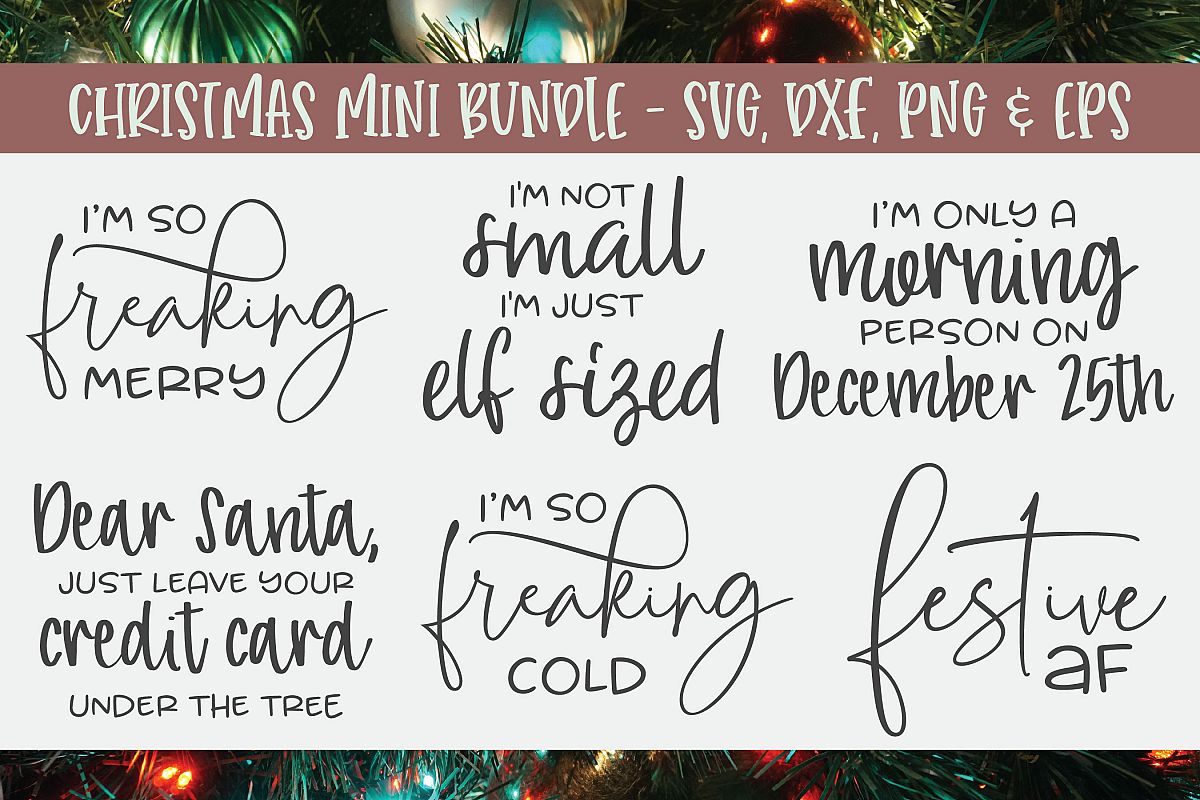 CHRISTMAS MINI BUNDLE - SVG, DXF, PNG & EPS
I'M SO
freaking
MERRY
I'M NOT
small
I'M JUST
elf sized
I'M ONLY A
morning
PERSON ON
December 25th
Dear Santa,
JUST LEAVE YOUR
credit card
UNDER THE TREE
I'M SO
freaking
COLD
festive
AF